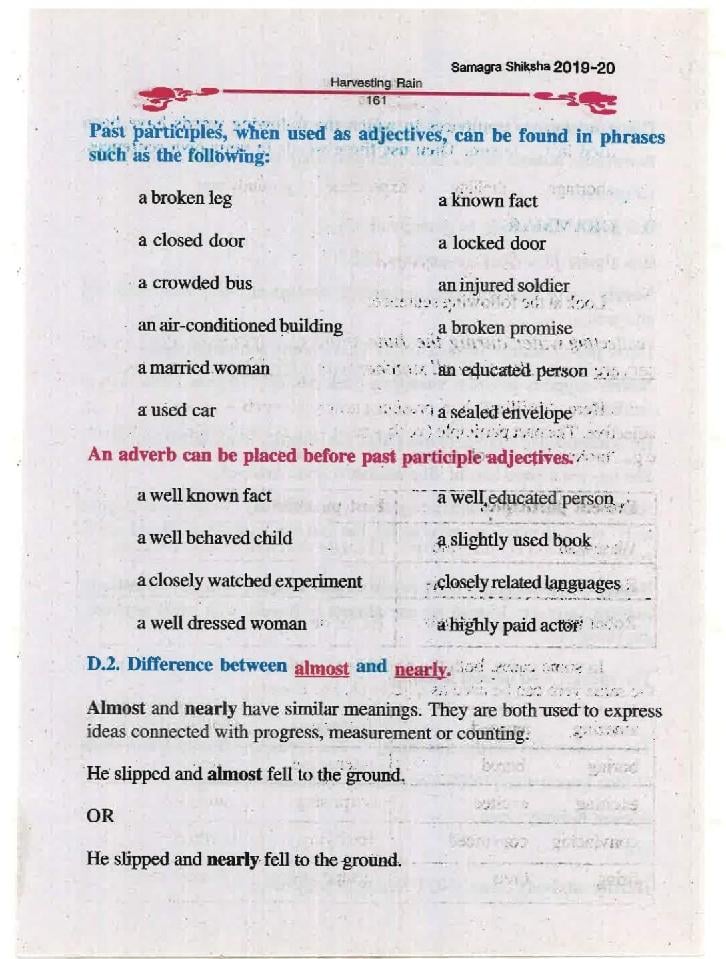 Samagra Shiksha 2019-20
Harvesting Rain
161
Past participles, when used as adjectives, can be found in phrases
such as the following:
a broken leg a known fact
a closed door a locked door
a crowded bus an injured soldier
an air-conditioned building a broken promise
a married woman an educated person
a used car a sealed envelope
An adverb can be placed before past participle adjectives.
a well known fact a well educated person
a well behaved child a slightly used book
a closely watched experiment closely related languages
a well dressed woman a highly paid actor
D.2. Difference between almost and nearly.
Almost and nearly have similar meanings. They are both used to express
ideas connected with progress, measurement or counting.
He slipped and almost fell to the ground.
OR
He slipped and nearly fell to the ground.